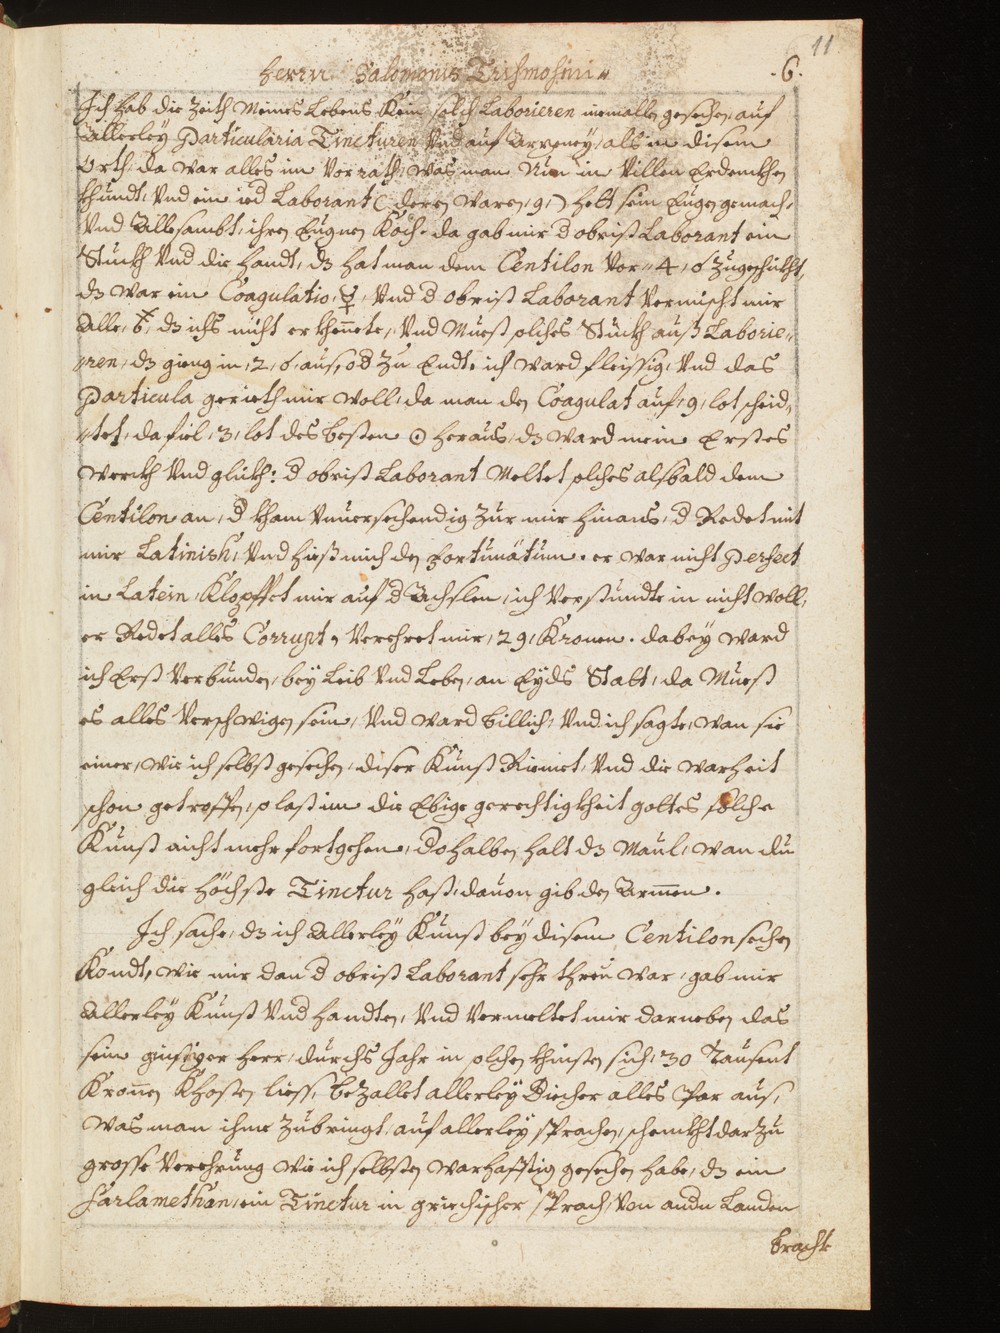 11
Herrn Salomonis Trismosini
.6.
Ich hab die Zeith Meines Lebens Kein solch Laborieren niemalls gesehen, auf
Allerley Particularia Tincturen Vnd auf Arzeney, als in disem
Orth, da war alles im Vorrath, was man Nun in Villen Erdenckhen
khundt, Vnd ein ied Laborant (deren waren, 9,) hett sein Eugen gemach,
Vnd Allesambt, ihren Eugnen Koch. da gab mir d obrist Laborant ein
Stuckh Vnd die handt, dz hat man dem Centilon Vor 4, 6 Zugeschickht,
dz war ein Coagulatio, ☿, Vnd d obrist Laborant Vermischt mir
Alle, dz ichs nicht erkhennete, Vnd Muest solches Stuckh auß Laborie,,
,,ren, dz gieng in, 2, 6, aus, od Zu Endt, ich ward fleissig, Vnd das
Particula gerieth mir woll, da man den Coagulat auf, 9, lot scheid,,
,,tet, da fiel, 3, lot des besten ☉ heraus, dz ward mein Erstes
werckh Vnd glickh: d obrist Laborant Meltet solches alsbald dem
Centilon an, d kham Vnuersehendig Zur mir hinaus, d Redet mit
mir Latinish, Vnd hieß mich den Fortunâtum. er war nicht Perfect
in Latein, Klopffet mir auf d Achslen, ich Verstundte in nicht woll,
er Redet alles Corrupt, Verehret mir, 29, Kronen. dabey ward
ich Erst Verbunden, bey Leib Vnd Leben, an Eyds Statt, da Muest
es alles Verschwigen sein, Vnd ward billich, Vnd ich sagte, wan sie
einer, wie ich selbst gesehen, diser Kunst Riemet, Vnd die warheit
schon getroffen, so last im die Ebige gerechtigkheit gottes solche
Kunst nicht mehr fortgehen, dohalben halt dz Maul, wan du
gleich die höchste Tinctur hast, dauon gib den Armen.
Ich sache, dz ich Allerley Kunst bey disem Centilon sehen
Kondt, wie mir dan d obrist Laborant sehr threu war, gab mir
Allerley Kunst Vnd handten, Vnd Vermeltet mir darneben das
sein ginstiger Herr, durchs Jahr in solchen khinsten sich, 30 Tausent
Kronen Khosten liess, bezallet allerley Biecher alles Par aus,
was man ihme Zubringt, auf allerley sprachen, schenckht darzu
grosse Verehrung wie ich selbsten warhafftig gesehen habe, dz ein
Sarlamethan, ein Tinctur in griechischer sprach, Von andn Landen
bracht